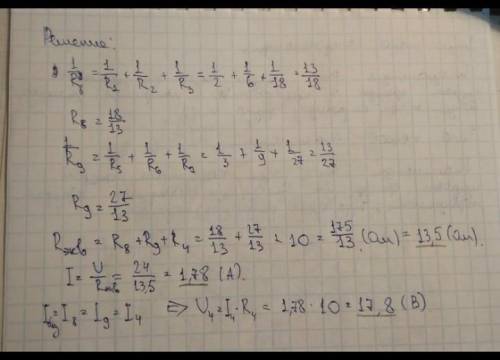 Решение:
1/R8 = 1/R1 + 1/R2 + 1/R3 = 1/2 + 1/6 + 1/18 = 13/18
R8 = 18/13
1/R9 = 1/R5 + 1/R6 + 1/R7 = 1/3 + 1/9 + 1/27 = 13/27
R9 = 27/13
Rэкв = R8 + R9 + R4 = 18/13 + 27/13 + 10 = 175/13 (Ом) = 13,5 (Ом).
I = U/Rэкв = 24/13,5 = 1,78 (А).
= I8 = I9 = I4 ⇒ U4 = I4 · R4 = 1,78 · 10 = 17,8 (В)